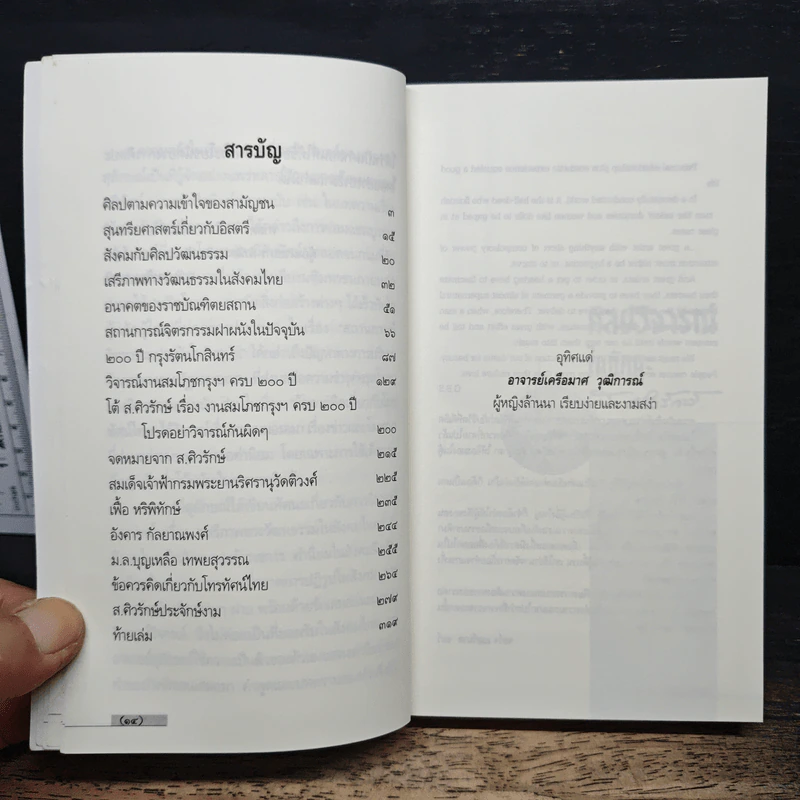 สารบัญ
ศิลปตามความเข้าใจของสามัญชน ๓
สุนทรียศาสตร์เกี่ยวกับอิสตรี ๑๕
สังคมกับศิลปวัฒนธรรม ๒๐
เสรีภาพทางวัฒนธรรมในสังคมไทย ๓๒
อนาคตของราชบัณฑิตยสถาน ๕๑
สถานการณ์จิตรกรรมฝาผนังในปัจจุบัน ๖๖
๒๐๐ ปี กรุงรัตนโกสินทร์ ๘๗
วิจารณ์งานสมโภชกรุงฯ ครบ ๒๐๐ ปี ๑๒๙
โต้ ส.ศิวรักษ์ เรื่อง งานสมโภชกรุงฯ ครบ ๒๐๐ ปี
โปรดอย่าวิจารณ์กันผิดๆ ๒๐๐
จดหมายจาก ส.ศิวรักษ์ ๒๑๕
สมเด็จเจ้าฟ้ากรมพระยานริศรานุวัดติวงศ์ ๒๒๕
เฟื้อ หริพิทักษ์ ๒๓๕
อังคาร กัลยาณพงศ์ ๒๔๔
ม.ล.บุญเหลือ เทพยสุวรรณ ๒๕๕
ข้อควรคิดเกี่ยวกับโทรทัศน์ไทย ๒๖๔
ส.ศิวรักษ์ประจักษ์งาม ๒๗๙
ท้ายเล่ม ๓๑๙
(๑๔)
อุทิศแด่
อาจารย์เครือมาศ วุฒิการณ์
ผู้หญิงล้านนา เรียบง่ายและงามสง่า